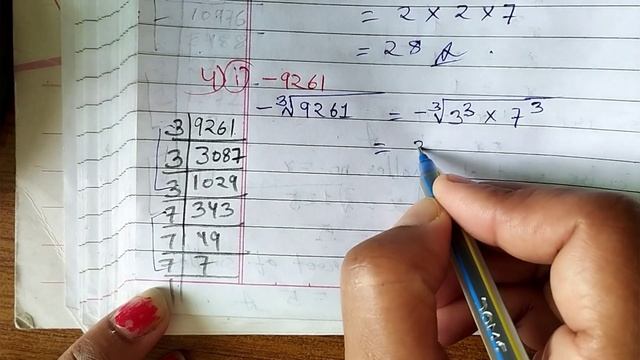 10976
5488
= 2 × 2 × 7
= 28
4) i) -9261
-∛9261 = -∛3³ × 7³
=
3 | 9261
3 | 3087
3 | 1029
7 | 343
7 | 49
7 | 7
1